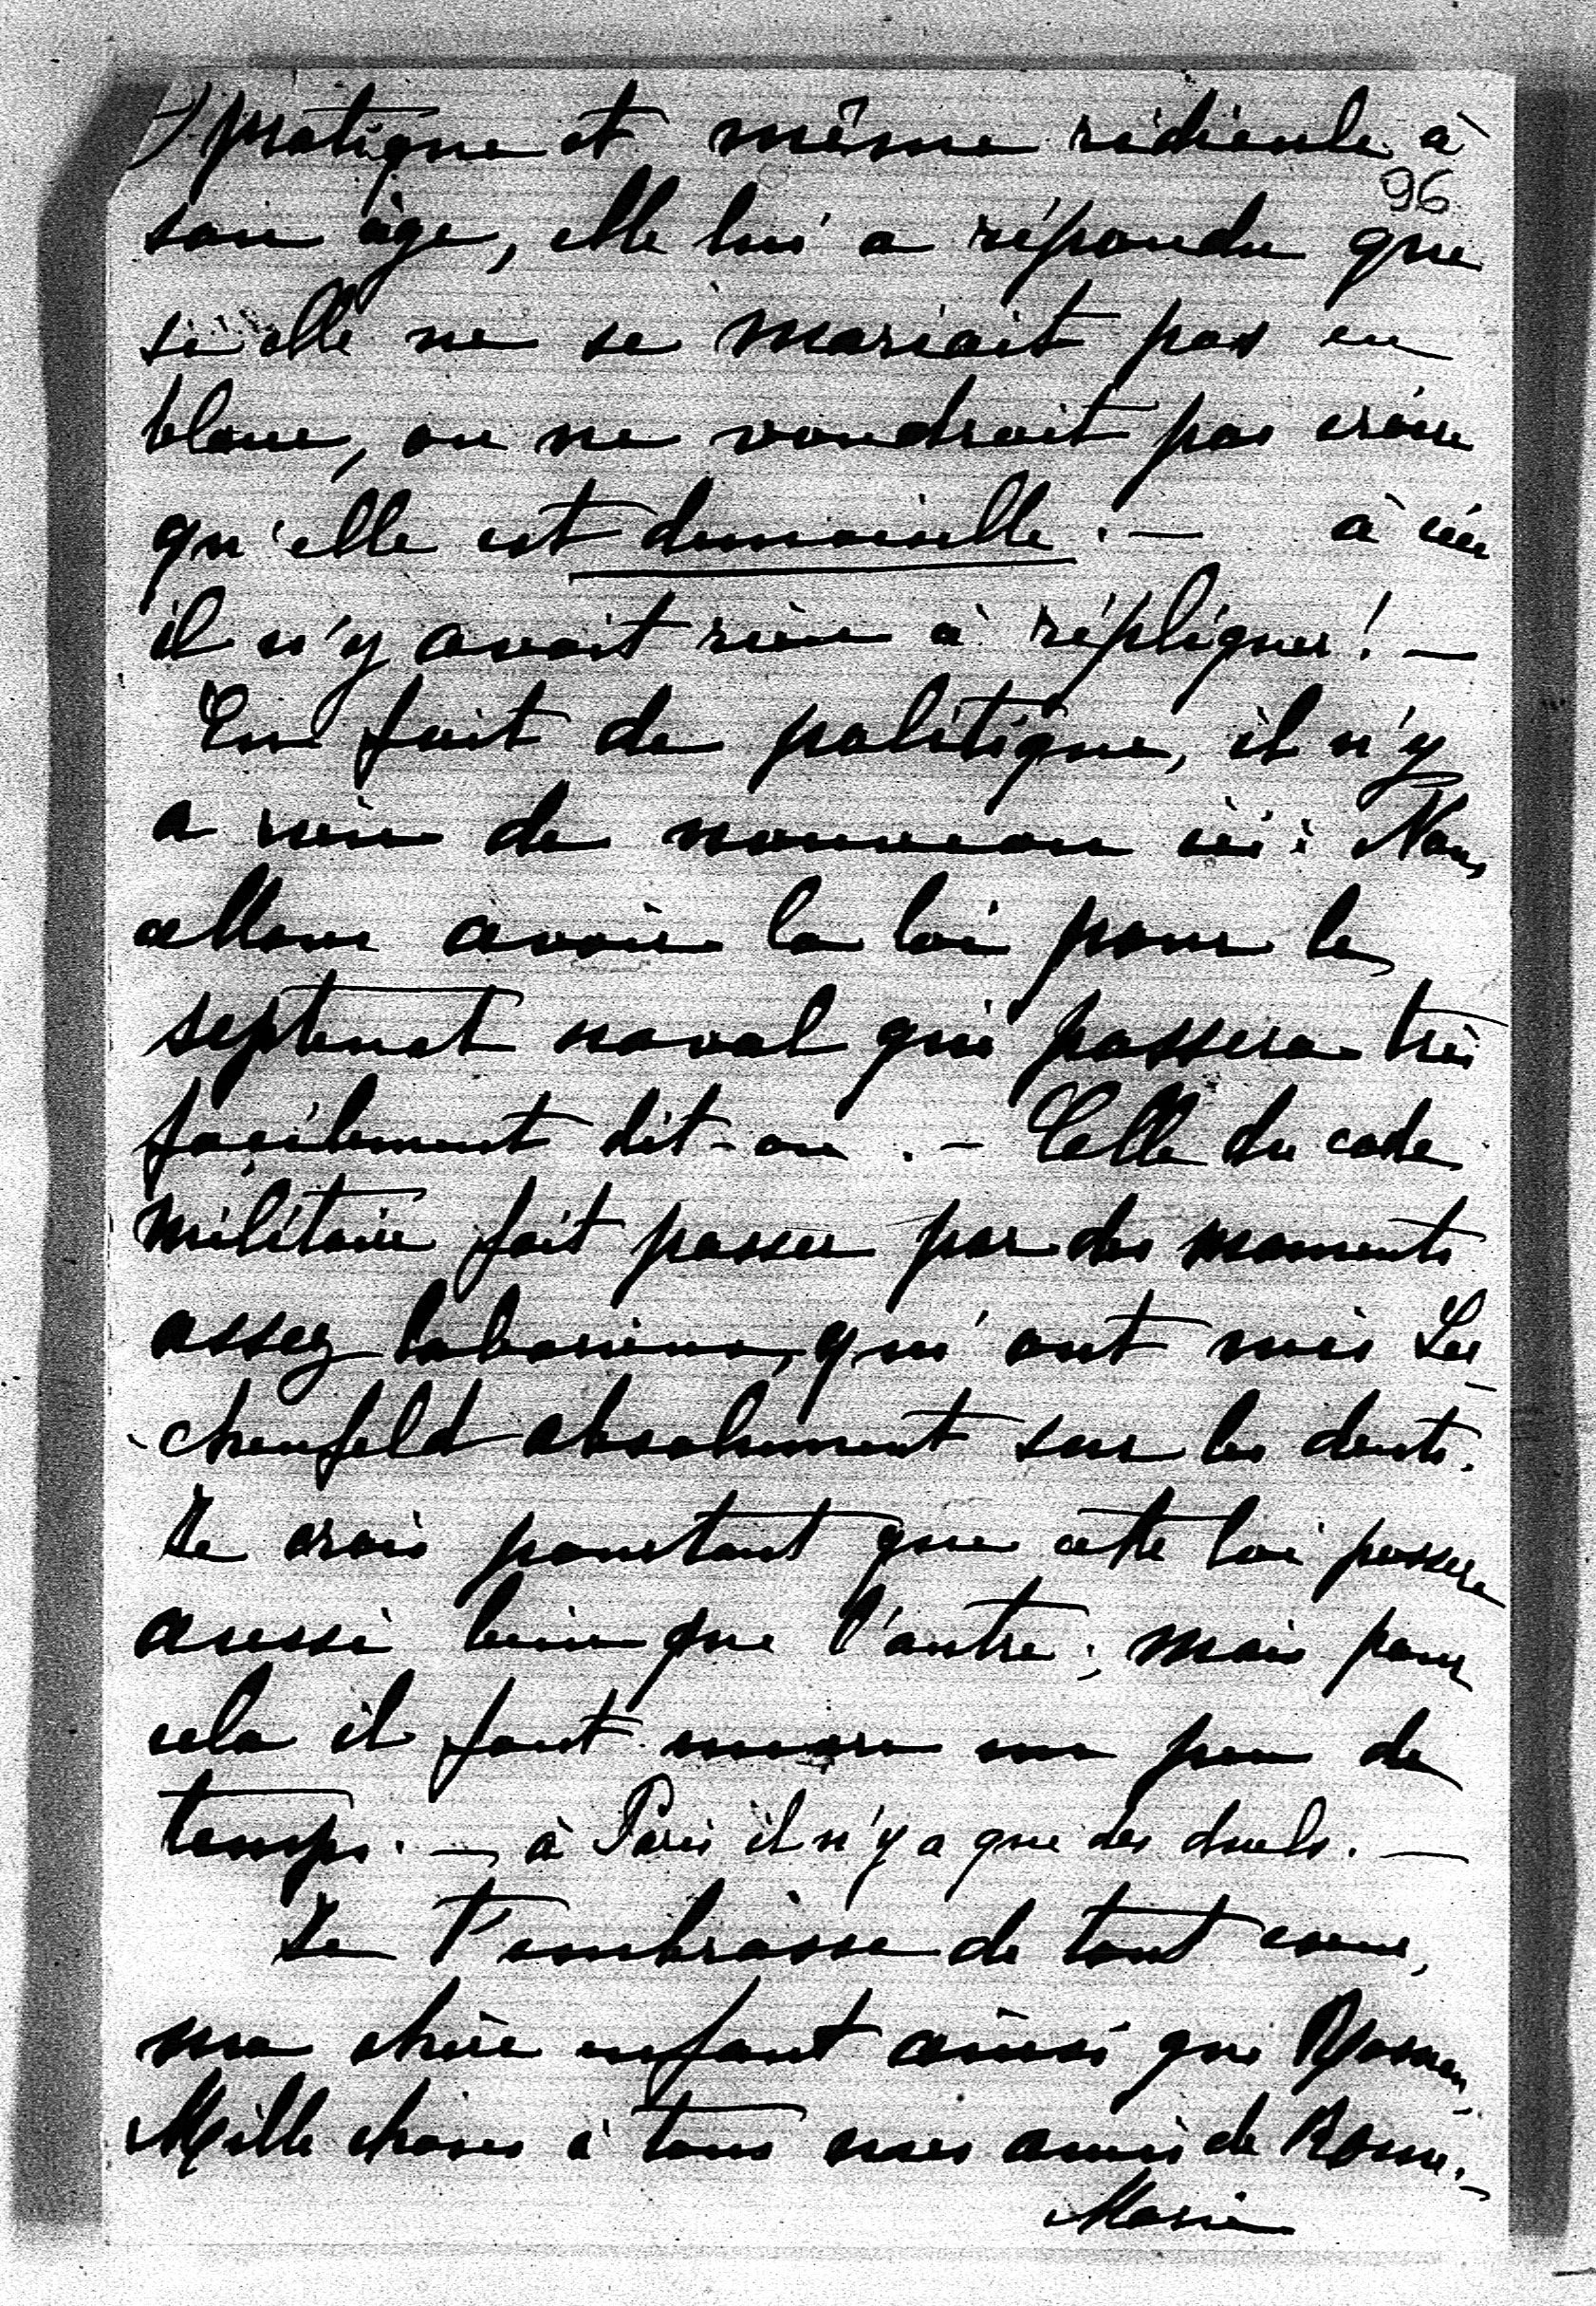 pratique et même ridicule à
96
son âge, elle lui a répondu que
si elle ne se mariait pas en
blanc, on ne voudrait pas croire
qu'elle est demoiselle. — à ceci
il n'y avait rien à répliquer! —
En fait de politique, il n'y
a rien de nouveau ici: Nous
allons avoir la loi pour le
septenat naval qui passera très
façilement dit-on. — Celle du code
militaire fait passer par des moments
assez laborieux, qui ont mis Ler-
chenfeld absolument sur les dents.
Je crois pourtant que cette loi passera
aussi bien que l'autre; mais pour
cela il faut encore un peu de
temps. — à Paris il n'y a que des duels. —
Je t'embrasse de tout cœur,
ma chère enfant ainsi que
Mille choses à tous mes amis de Rome. —
Marie